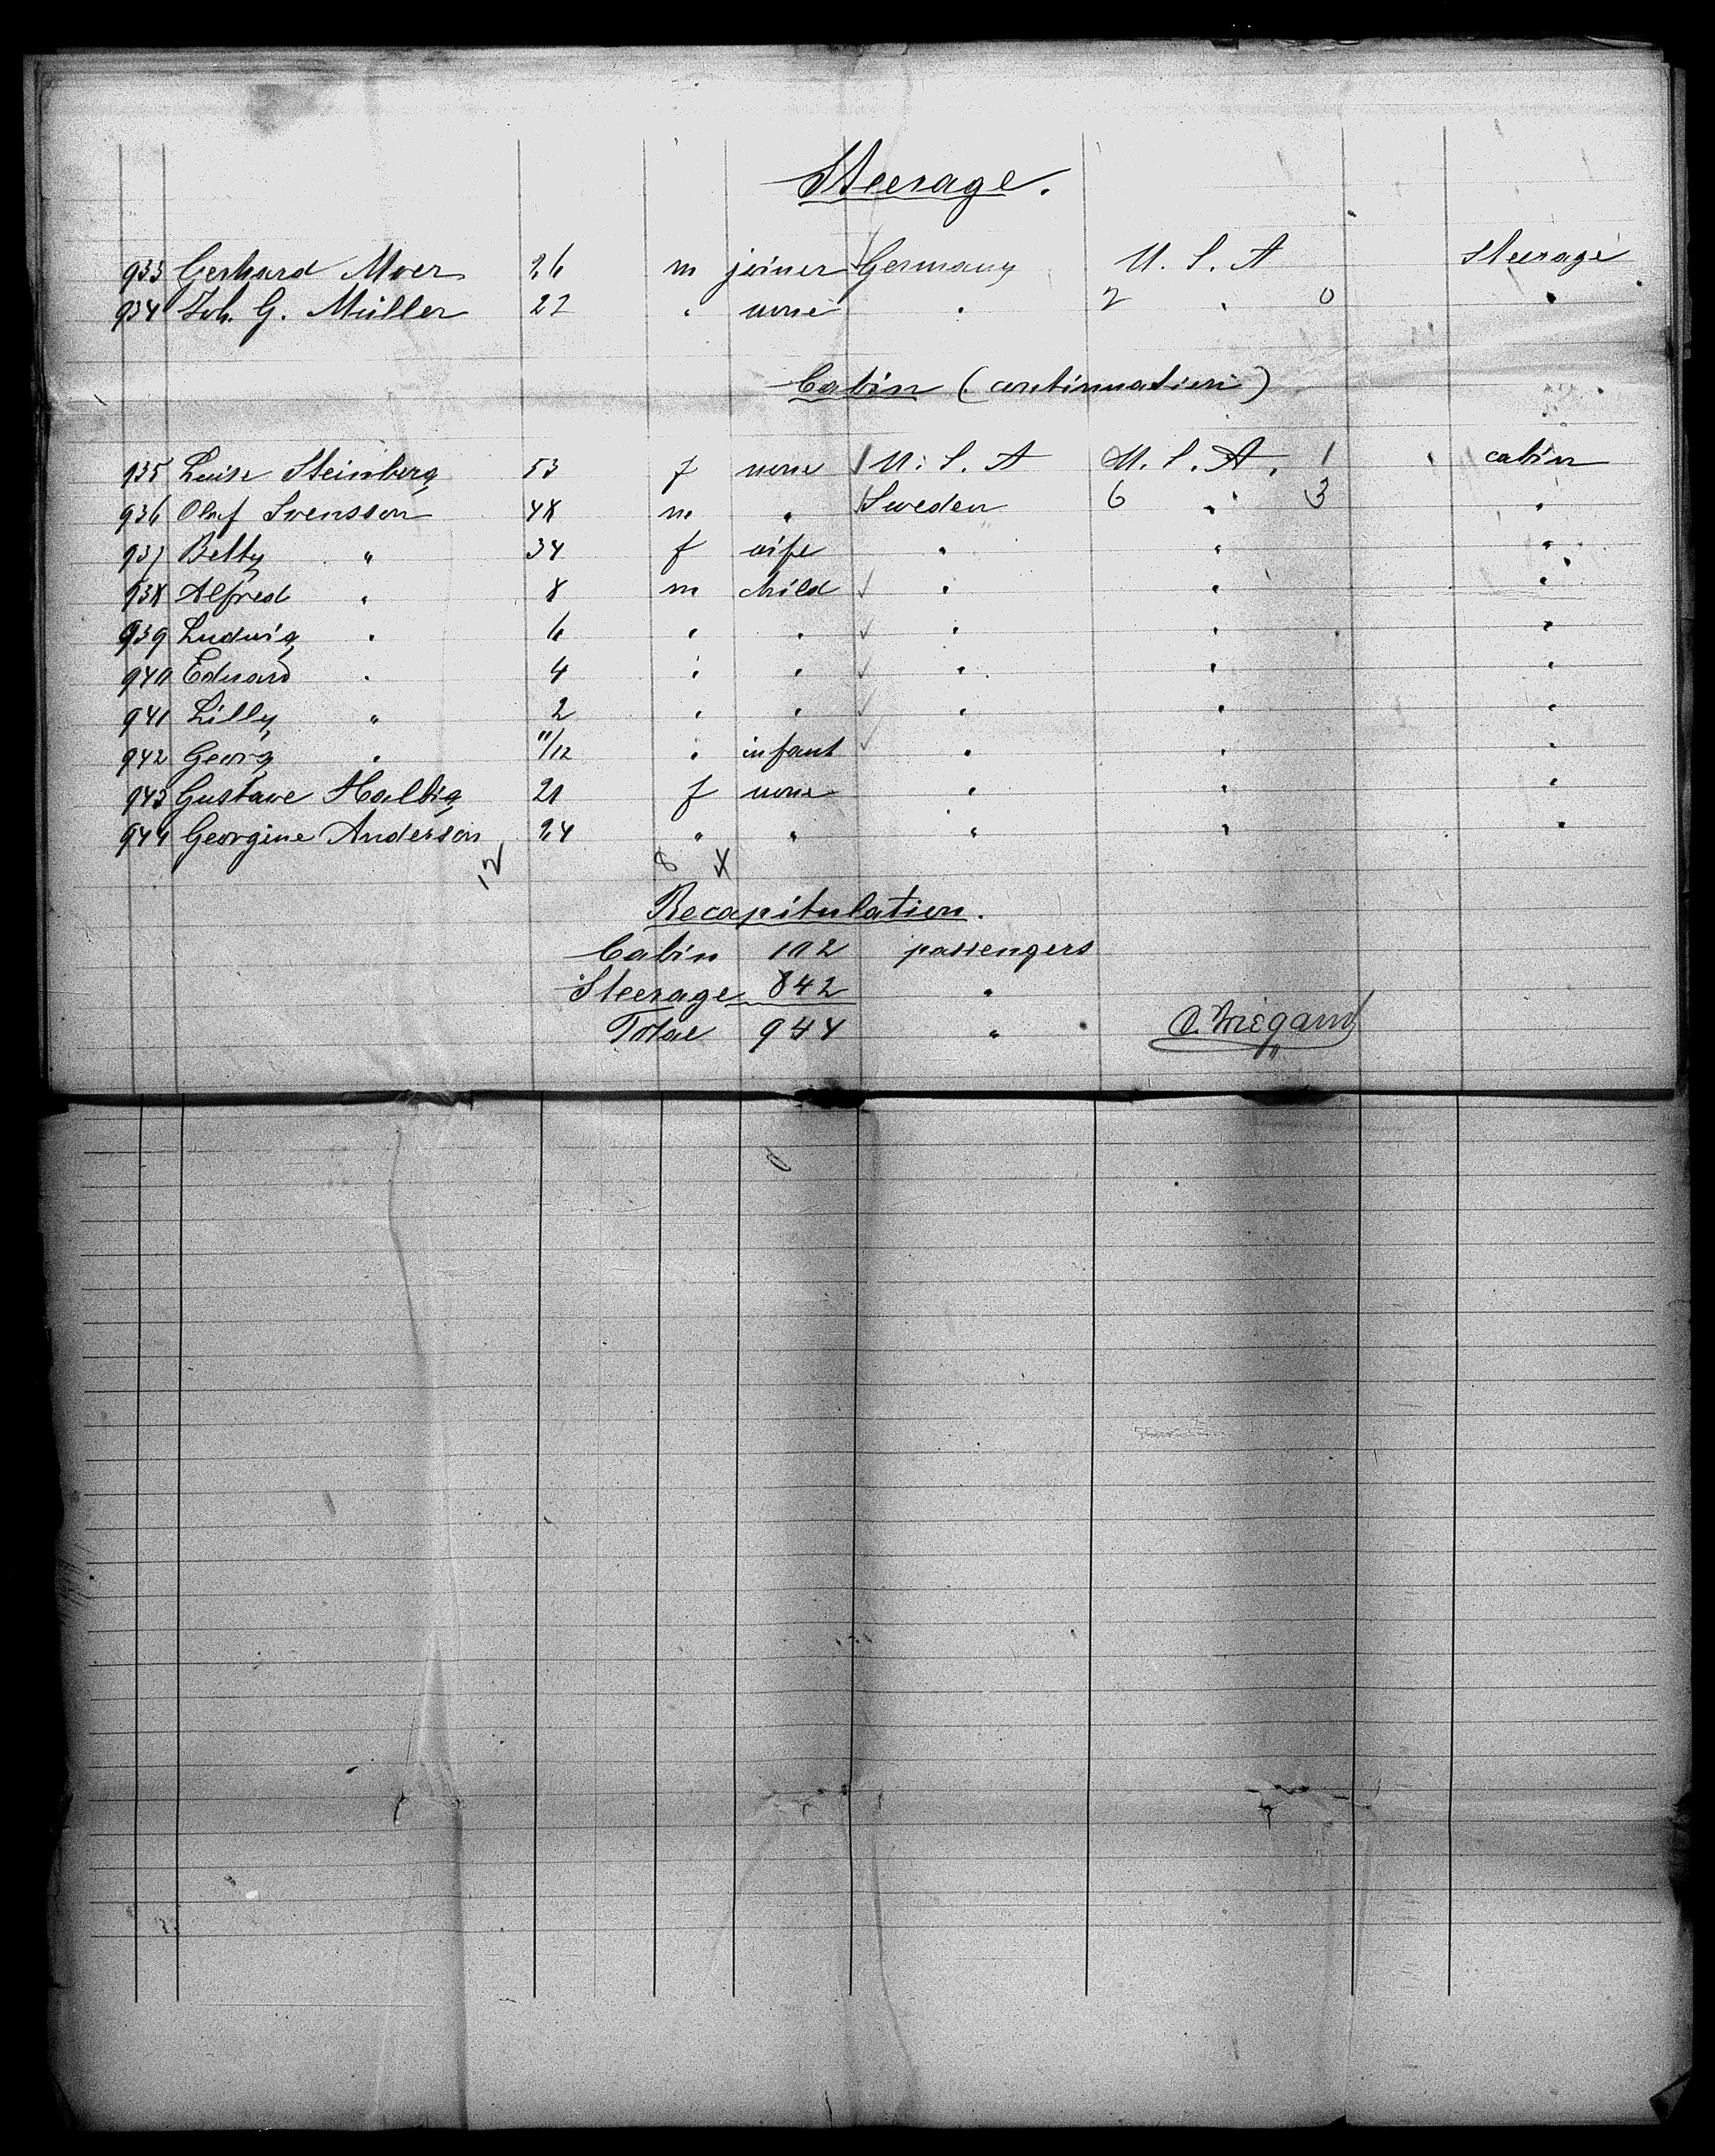 Steerage.
933 Gerhard Moer 26 m joiner Germany U. S. A Steerage
934 Joh. G. Müller 22 " none " 2 " 0 "
Cabin (continuation)
935 Luise Steinberg 53 f none U. S. A U. S. A. 1 cabin
936 Olaf Svensson 48 m " Sweden 6 " 3 "
937 Betty " 34 f wife " " "
938 Alfred " 8 m child " " "
939 Ludwig " 6 " " " " "
940 Eduard " 4 " " " " "
941 Lilly " 2 " " " " "
942 Georg " 11/12 " infant " " "
943 Gustave Halbig 21 f none " " "
944 Georgine Anderson 24 " " " " "
12 8 4
Recapitulation.
Cabin 102 passengers
Steerage 842 "
Total 944 "
O. Wiegand